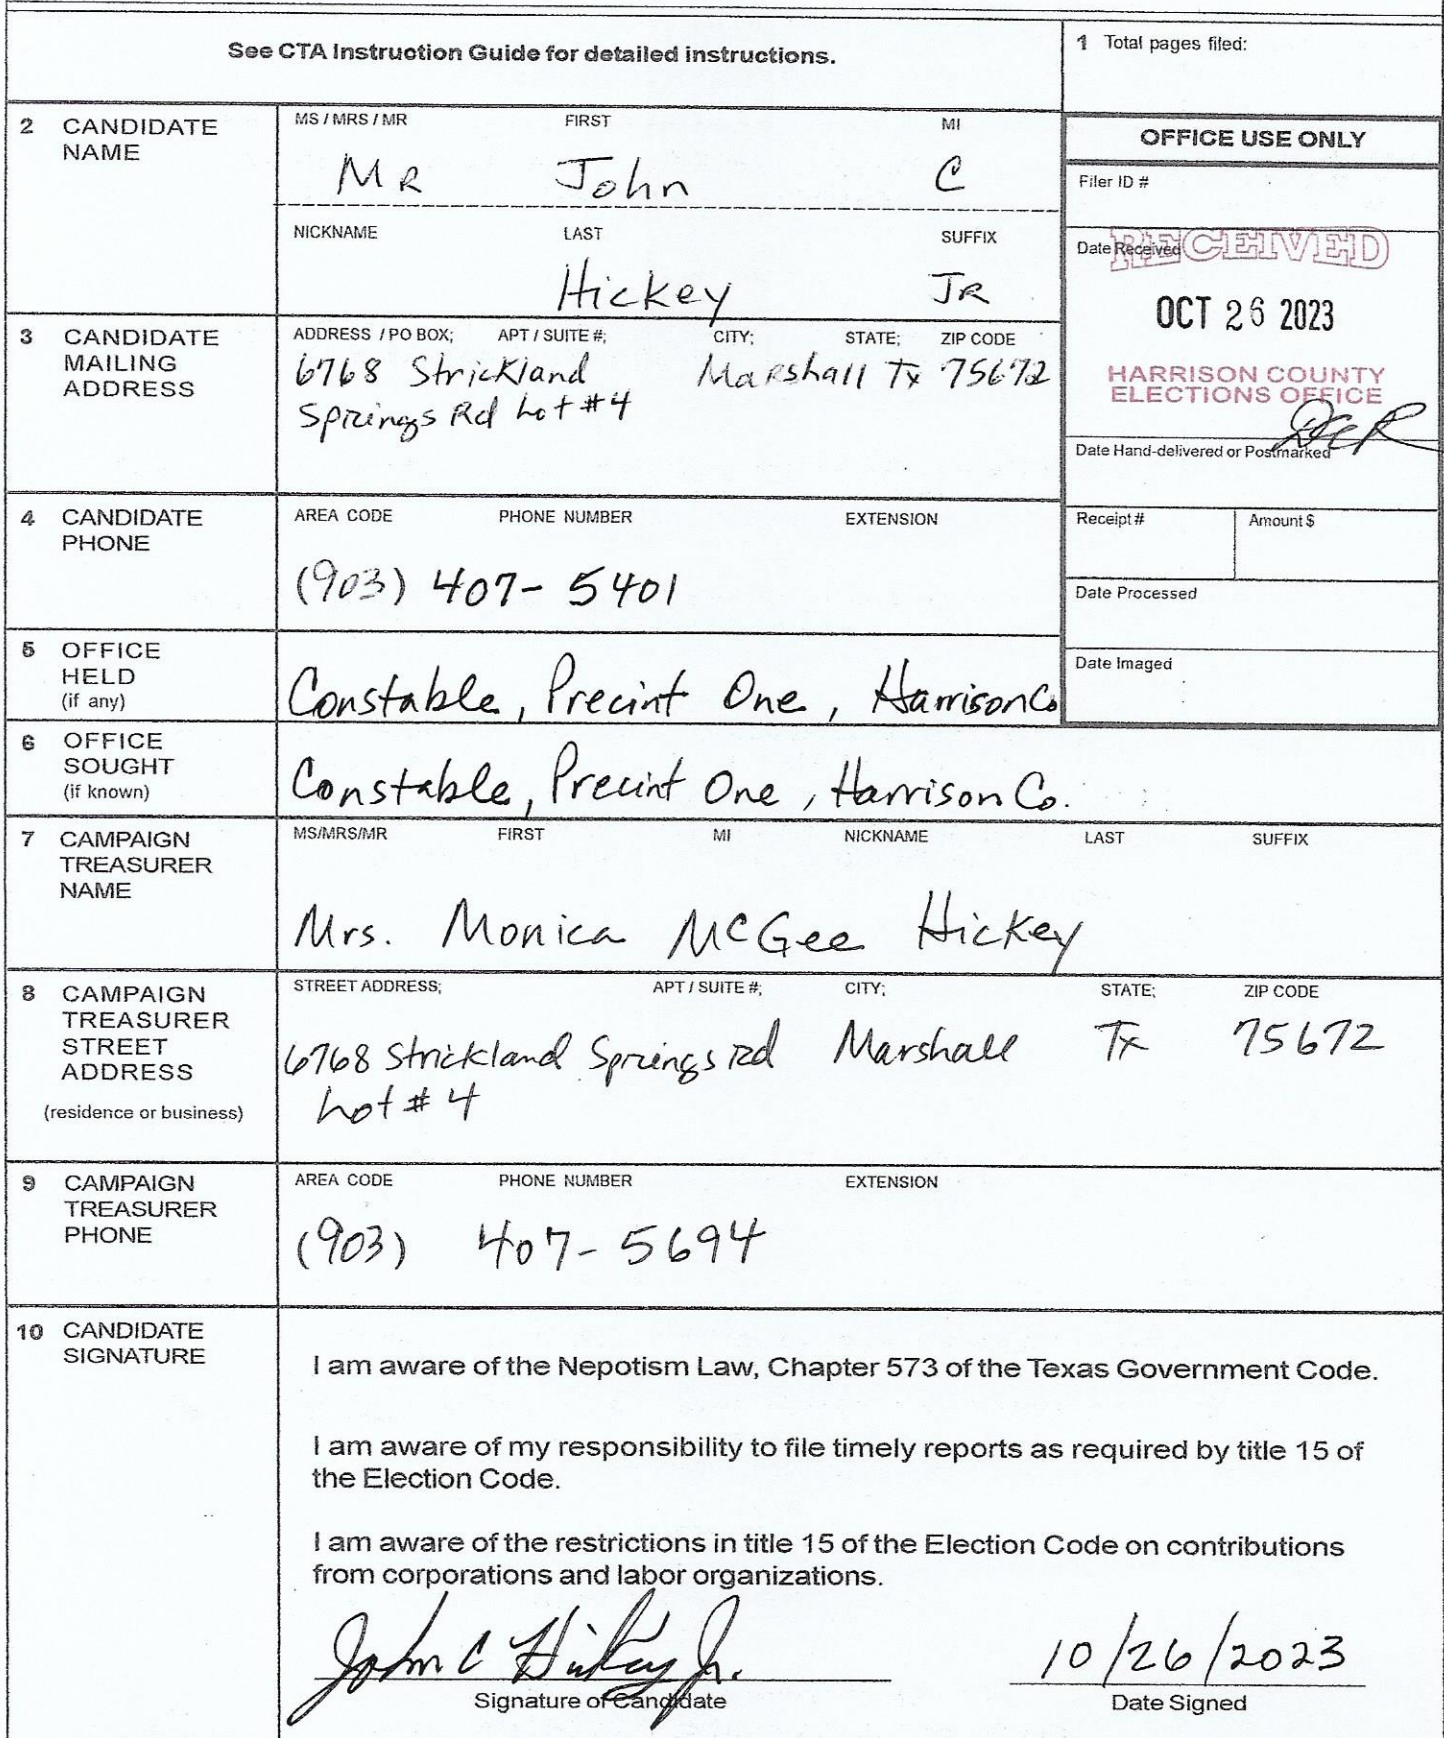 See CTA Instruction Guide for detailed instructions.
1 Total pages filed:
2 CANDIDATE NAME
MS / MRS / MR FIRST MI
MR John C
NICKNAME LAST SUFFIX
Hickey JR
OFFICE USE ONLY
Filer ID #
Date Received
RECEIVED
OCT 26 2023
HARRISON COUNTY
ELECTIONS OFFICE
DCR
Date Hand-delivered or Postmarked
Receipt # Amount $
Date Processed
Date Imaged
3 CANDIDATE MAILING ADDRESS
ADDRESS / PO BOX; APT / SUITE #; CITY; STATE; ZIP CODE
6768 Strickland Marshall Tx 75672
Springs Rd Lot #4
4 CANDIDATE PHONE
AREA CODE PHONE NUMBER EXTENSION
(903) 407-5401
5 OFFICE HELD (if any)
Constable, Precint One, Harrison Co
6 OFFICE SOUGHT (if known)
Constable, Precint One, Harrison Co.
7 CAMPAIGN TREASURER NAME
MS/MRS/MR FIRST MI NICKNAME LAST SUFFIX
Mrs. Monica McGee Hickey
8 CAMPAIGN TREASURER STREET ADDRESS
(residence or business)
STREET ADDRESS; APT / SUITE #; CITY; STATE; ZIP CODE
6768 Strickland Springs Rd Marshall Tx 75672
Lot # 4
9 CAMPAIGN TREASURER PHONE
AREA CODE PHONE NUMBER EXTENSION
(903) 407-5694
10 CANDIDATE SIGNATURE
I am aware of the Nepotism Law, Chapter 573 of the Texas Government Code.
I am aware of my responsibility to file timely reports as required by title 15 of
the Election Code.
I am aware of the restrictions in title 15 of the Election Code on contributions
from corporations and labor organizations.
John C Hickey Jr. 10/26/2023
Signature of Candidate Date Signed